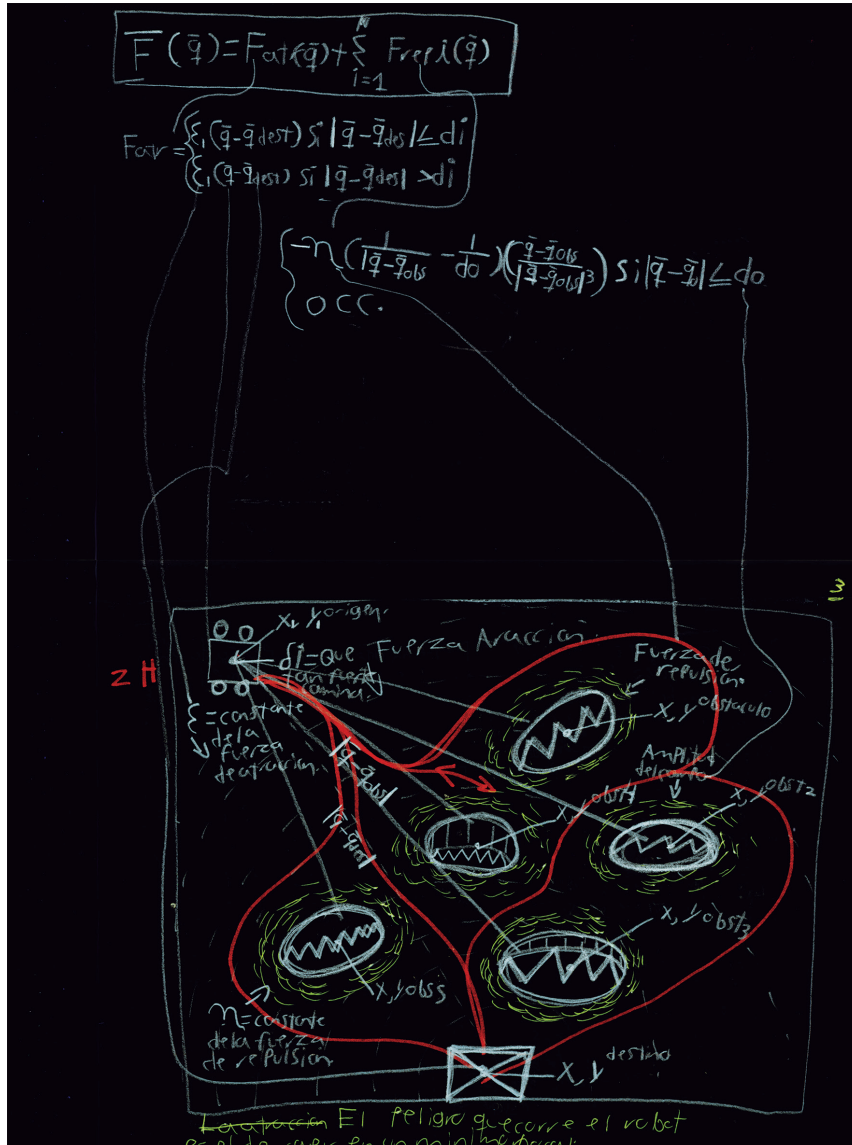 F̄(q̄)=Fatr(q̄)+Σ Frepi(q̄)
i=1
Fatr = {ξ₁(q̄-q̄dest) si |q̄-q̄des|≤di
ξ₁(q̄-q̄dest) si |q̄-q̄des| >di
{-η(1/|q̄-q̄obs - 1/do)(q̄-q̄obs/|q̄-q̄obs|³) si|q̄-q̄o|≤do
O CC.
X, Y, origen.
di=Que Fuerza Aracción.
tan fuerte
camina
2 H
ξ=constante
de la
fuerza
de atracción.
Fuerza de
repulsion.
X, Y obstaculo
Amplitud
del campo
X, Y obst2
X, Y obst1
|q̄-q̄obs|
|q̄-q̄des|
X, Y obst3
X, Y obs5
η=constante
de la fuerza
de repulsion
X, Y destino
La atraccion El peligro que corre el robot
es el de caer en un minimo